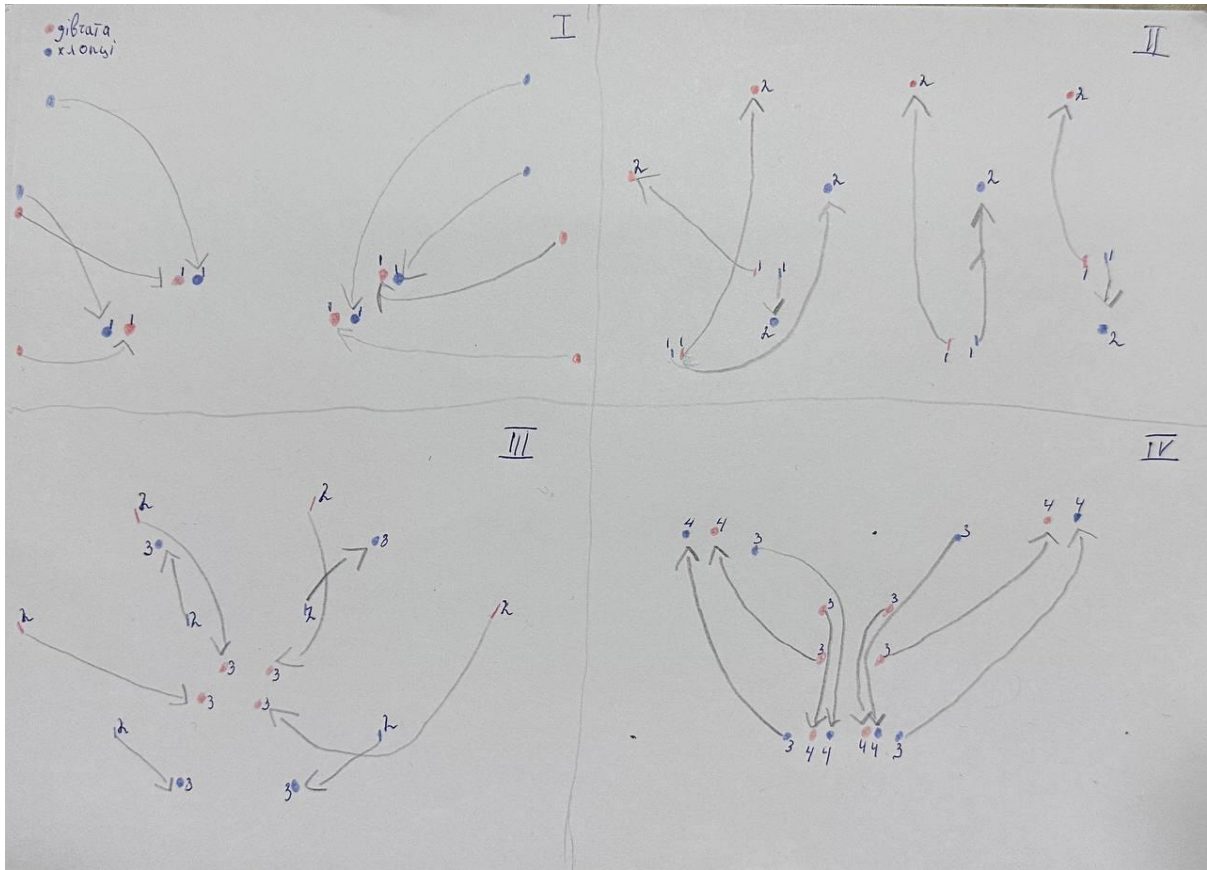 дівчата
хлопці
I
1 1 1 1
1 1 1 1
II
2 2 2
2 2 2
1 1 1 1
2 2
1 1 1 1
III
2 2
3 3
2 2 2 2
3 3
3 3
2 2
3 3
IV
4 4 4 4
3 3
3 3
3 3
3 4 4 4 4 3